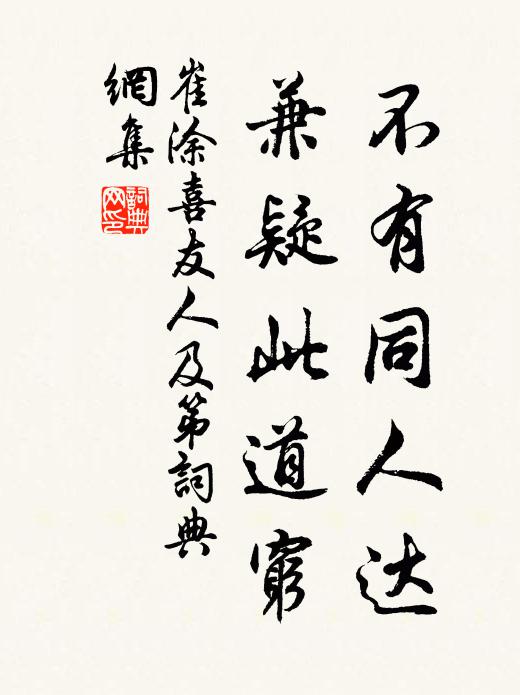 不有同人达
兼疑此道窮
崔涂喜友人及第詞典
網集
詞典網印